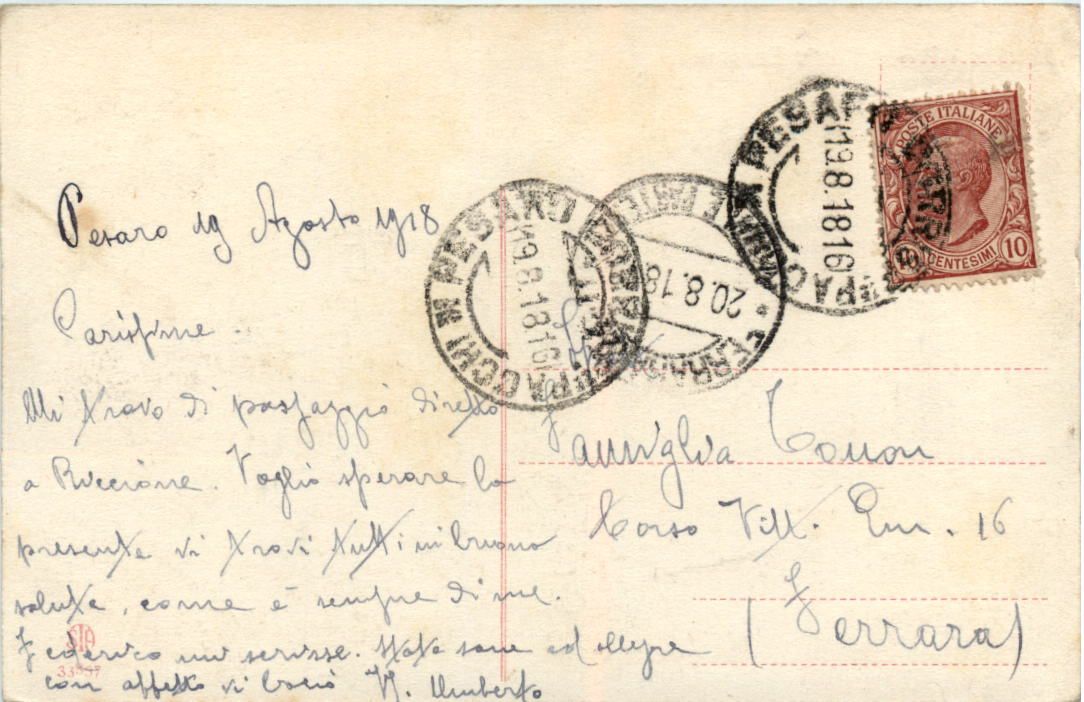 Pesaro 19 Agosto 1918
Carissime.
Mi trovo di passaggio diretto
a Riccione. Voglio sperare la
presente vi trovi tutti in buono
salute, come è sempre di me.
Federico mi scrisse. State sane ed allegre
con affetto vi bacio Umberto
SIA
33357
PACCHI PESARO
19.8.18 16
FERRARA
20.8.18
PACCHI PESARO
19.8.18 16
POSTE ITALIANE
10 CENTESIMI 10
Famiglia
Corso Vitt. Em. 16
(Ferrara)